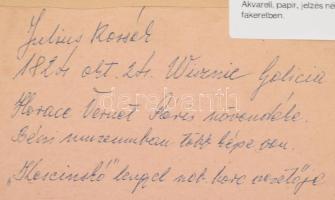 Akvarell, papír, jelzés né
fakeretben.
Julius Kossák
1824 okt. 24. Wisnic Galicia
Horace Vernet Paris növendéke.
Bécsi muzeumban több képe van.
"Kosciuskó" lengyel
darabanth